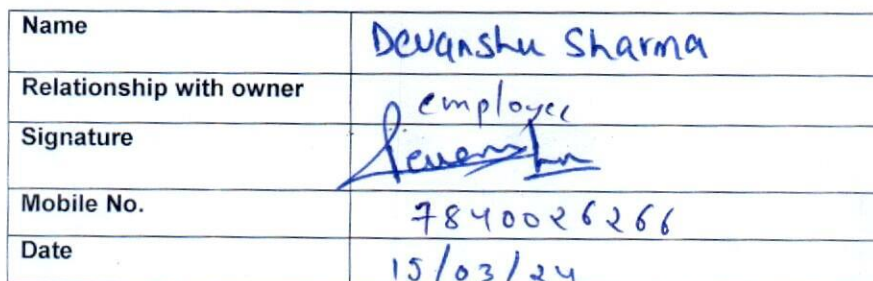 Name Devanshu Sharma
Relationship with owner employee
Signature Devanshu
Mobile No. 7840026266
Date 15/03/24